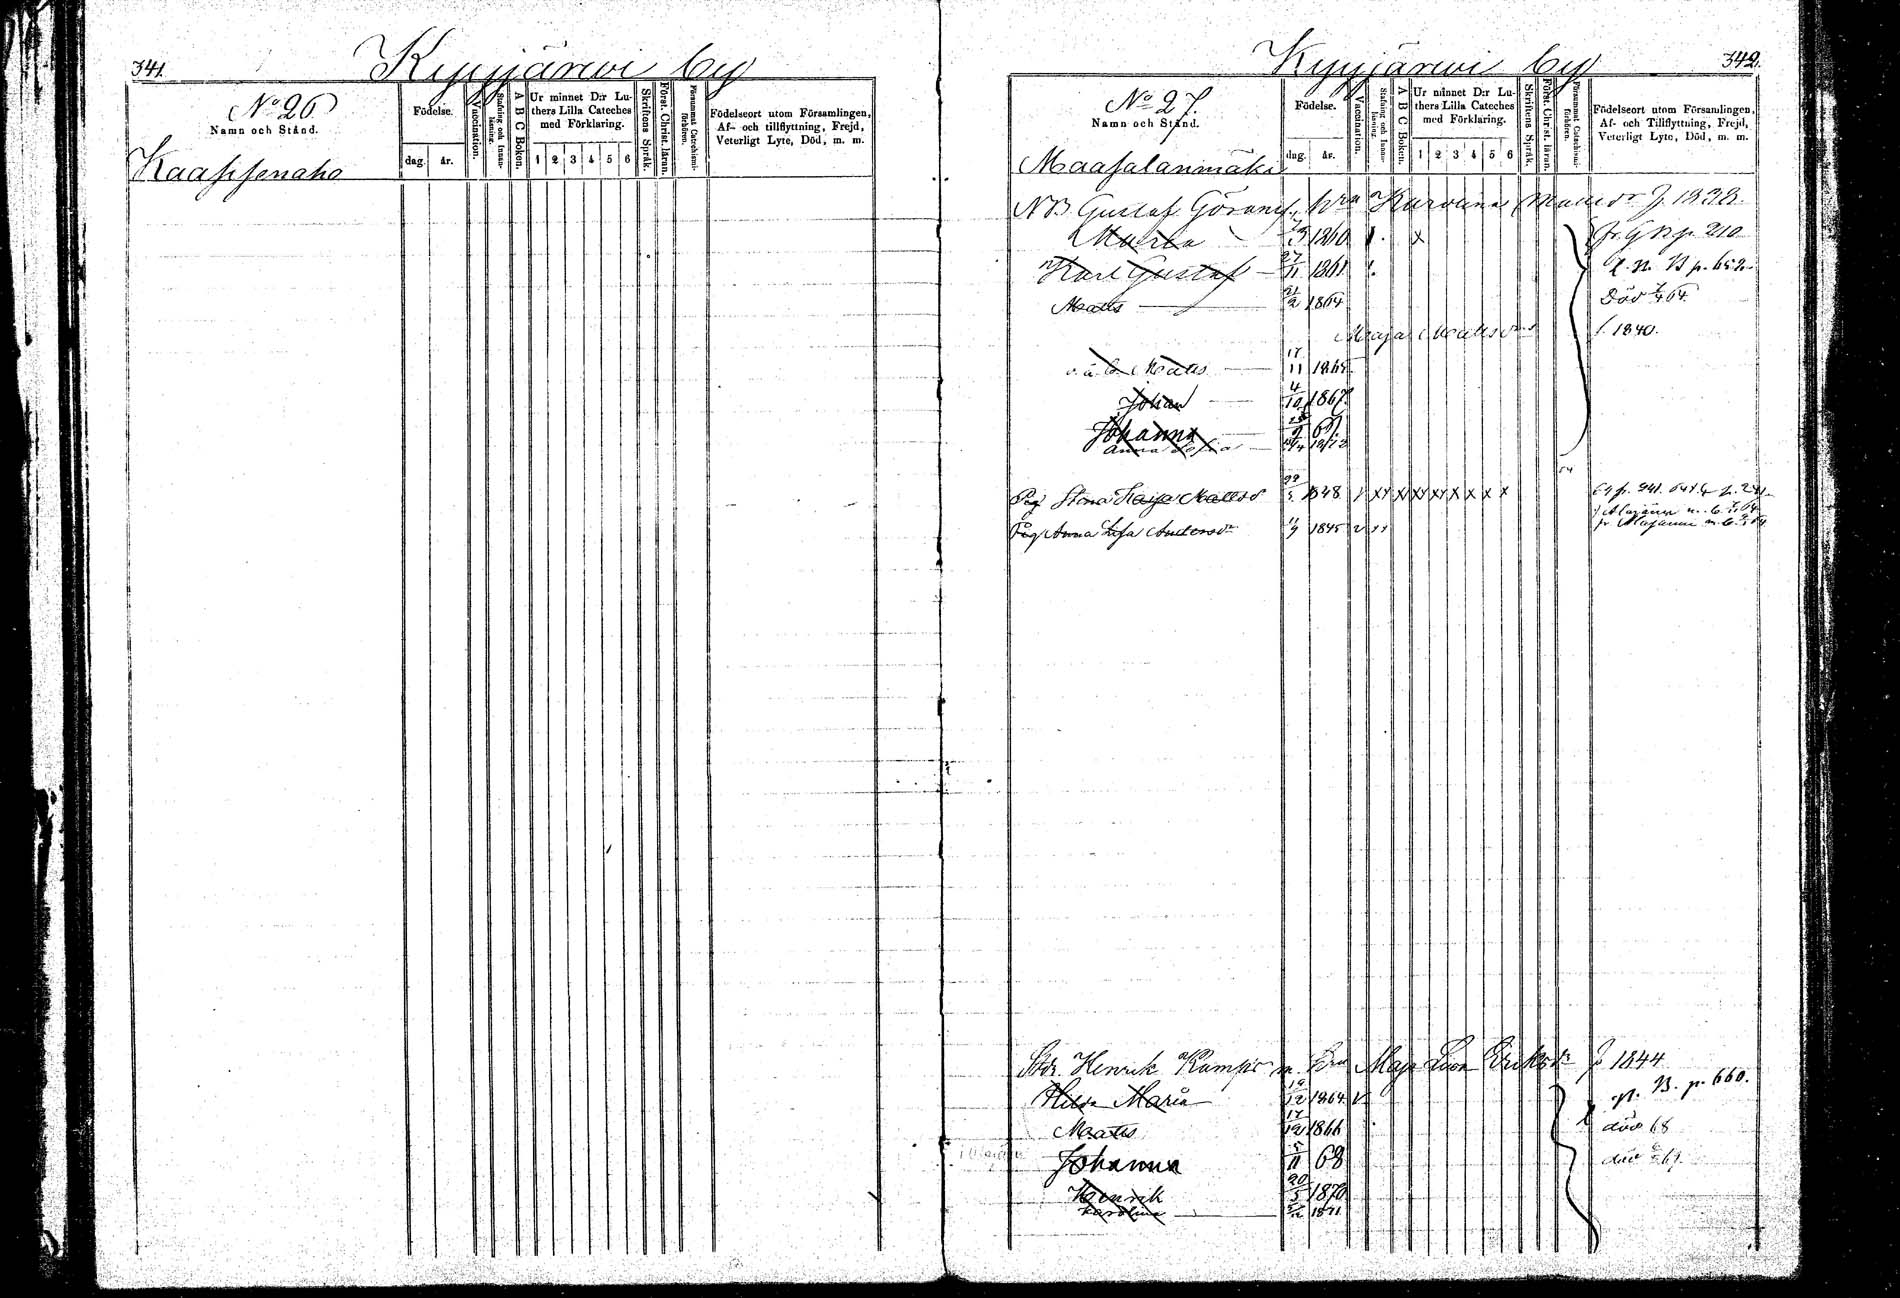 341.
Kyyjärwi by
No 26
Namn och Stånd.
Födelse.
dag. år.
Vaccination.
Stafning och Innanläsning.
A B C Boken.
Ur minnet D:r Luthers Lilla Cateches med Förklaring.
1 2 3 4 5 6
Skriftens Språk.
Först. Christ. läran.
Försummat Catechismiförhören.
Födelseort utom Församlingen, Af- och tillflyttning, Frejd, Veterligt Lyte, Död, m. m.
Kaappenaho
342.
Kyyjärwi by
No 27.
Namn och Stånd.
Födelse.
dag. år.
Vaccination.
Stafning och Innanläsning.
A B C Boken.
Ur minnet D:r Luthers Lilla Cateches med Förklaring.
1 2 3 4 5 6
Skriftens Språk.
Först. Christ. läran.
Försummat Catechismiförhören.
Födelseort utom Församlingen, Af- och Tillflyttning, Frejd, Veterligt Lyte, Död, m. m.
Maasalanmäki
NB Gustaf Göranss. hru Karolina Mattsdr f. 1838.
Maria 1860 x p. 210
Karl Gustaf 27/11 1861 N. B p. 652
Matts 21/2 1864 Död 64
Maja Mattsdr f. 1840.
Matts 17/11 1865
Johan 4/10 1867.
Johanna
Anna Sofia
Pig Stina Kajsa Mattsd 1848 v xx x xx xx x x x x
Pig Anna Lisa Andersdr 1845 v xx
Henrik Kampis m. hru Maja Lisa Eriksdr f 1844
Hilda Maria 19/12 1864 v N. B. p. 660.
Matts 17/12 1866 död 68
Johanna 5/11 68 död 69.
Henrik 20/5 1870
Karolina 1871